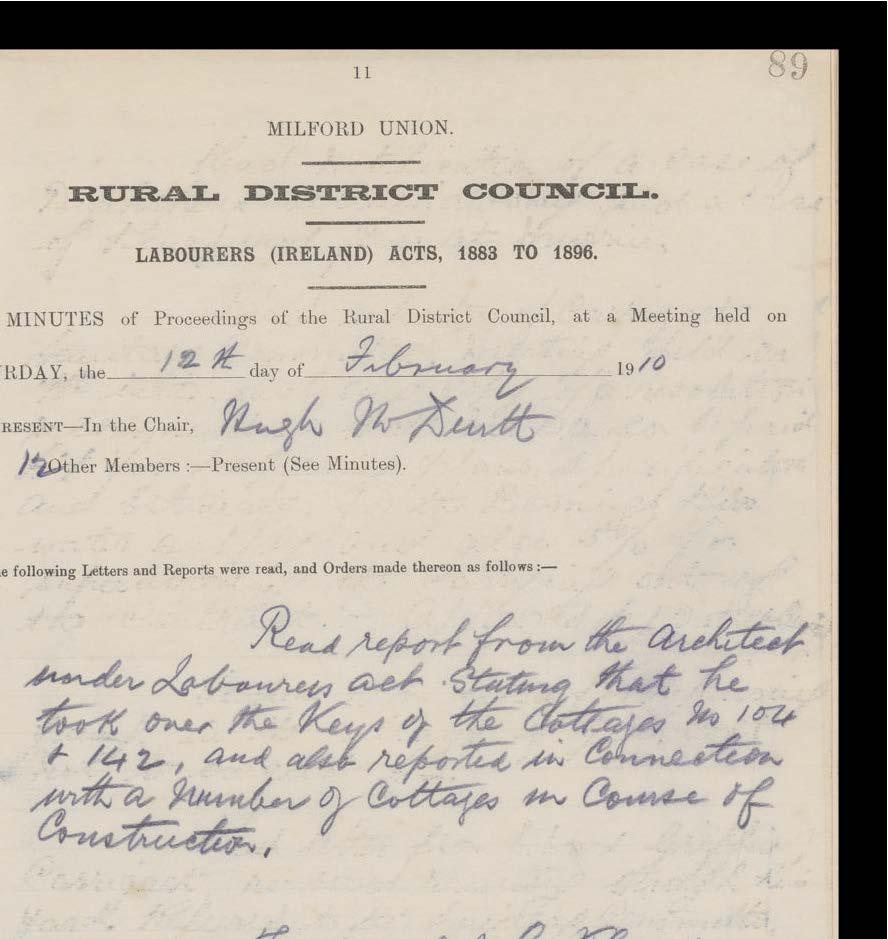 89
11
MILFORD UNION.
RURAL DISTRICT COUNCIL.
LABOURERS (IRELAND) ACTS, 1883 TO 1896.
MINUTES of Proceedings of the Rural District Council, at a Meeting held on
RDAY, the 12th day of February 1910
RESENT—In the Chair, Hugh McDevitt
12 Other Members :—Present (See Minutes).
e following Letters and Reports were read, and Orders made thereon as follows :—
Read report from the Architect
under Labourers act Stating that he
took over the Keys of the Cottages No 104
& 142, and also reported in Connection
with a Number of Cottages in Course of
Construction.